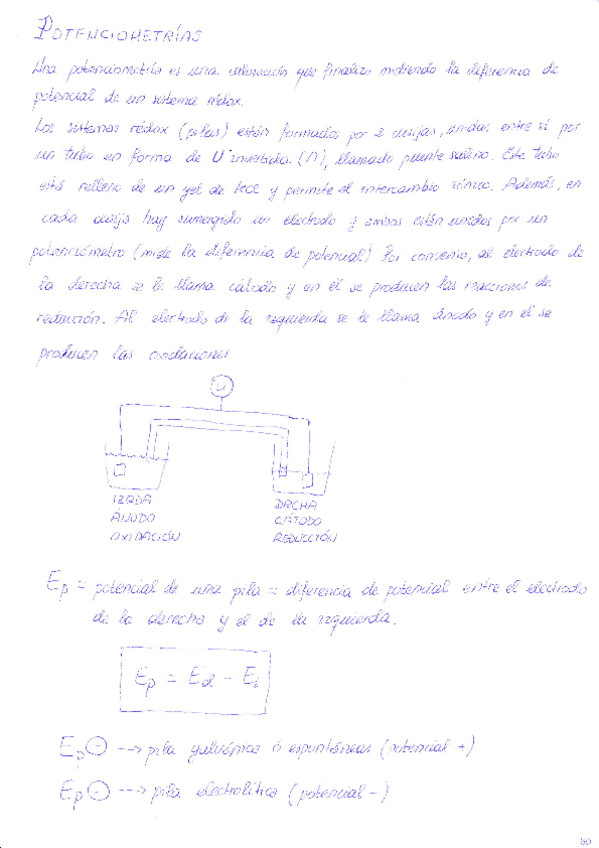 POTENCIOMETRÍAS
Una potenciometría es una valoración que finaliza midiendo la diferencia de
potencial de un sistema rédox.
Los sistemas rédox (pilas) están formados por 2 vasijas, unidas entre sí por
un tubo en forma de U invertida (∩), llamado puente salino. Este tubo
está relleno de un gel de KCl y permite el intercambio iónico. Además, en
cada vasija hay sumergido un electrodo y ambos están unidos por un
potenciómetro (mide la diferencia de potencial) Por convenio, al electrodo de
la derecha se le llama cátodo y en él se producen las reacciones de
reducción. Al electrodo de la izquierda se le llama ánodo y en él se
producen las oxidaciones
IZQDA
ÁNODO
OXIDACIÓN
DRCHA
CÁTODO
REDUCCIÓN
Ep = potencial de una pila = diferencia de potencial entre el electrodo
de la derecha y el de la izquierda.
Ep = Ed - Ei
Ep --> pila galvánica ó espontáneas (potencial +)
Ep ⊖ ---> pila electrolítica (potencial -)